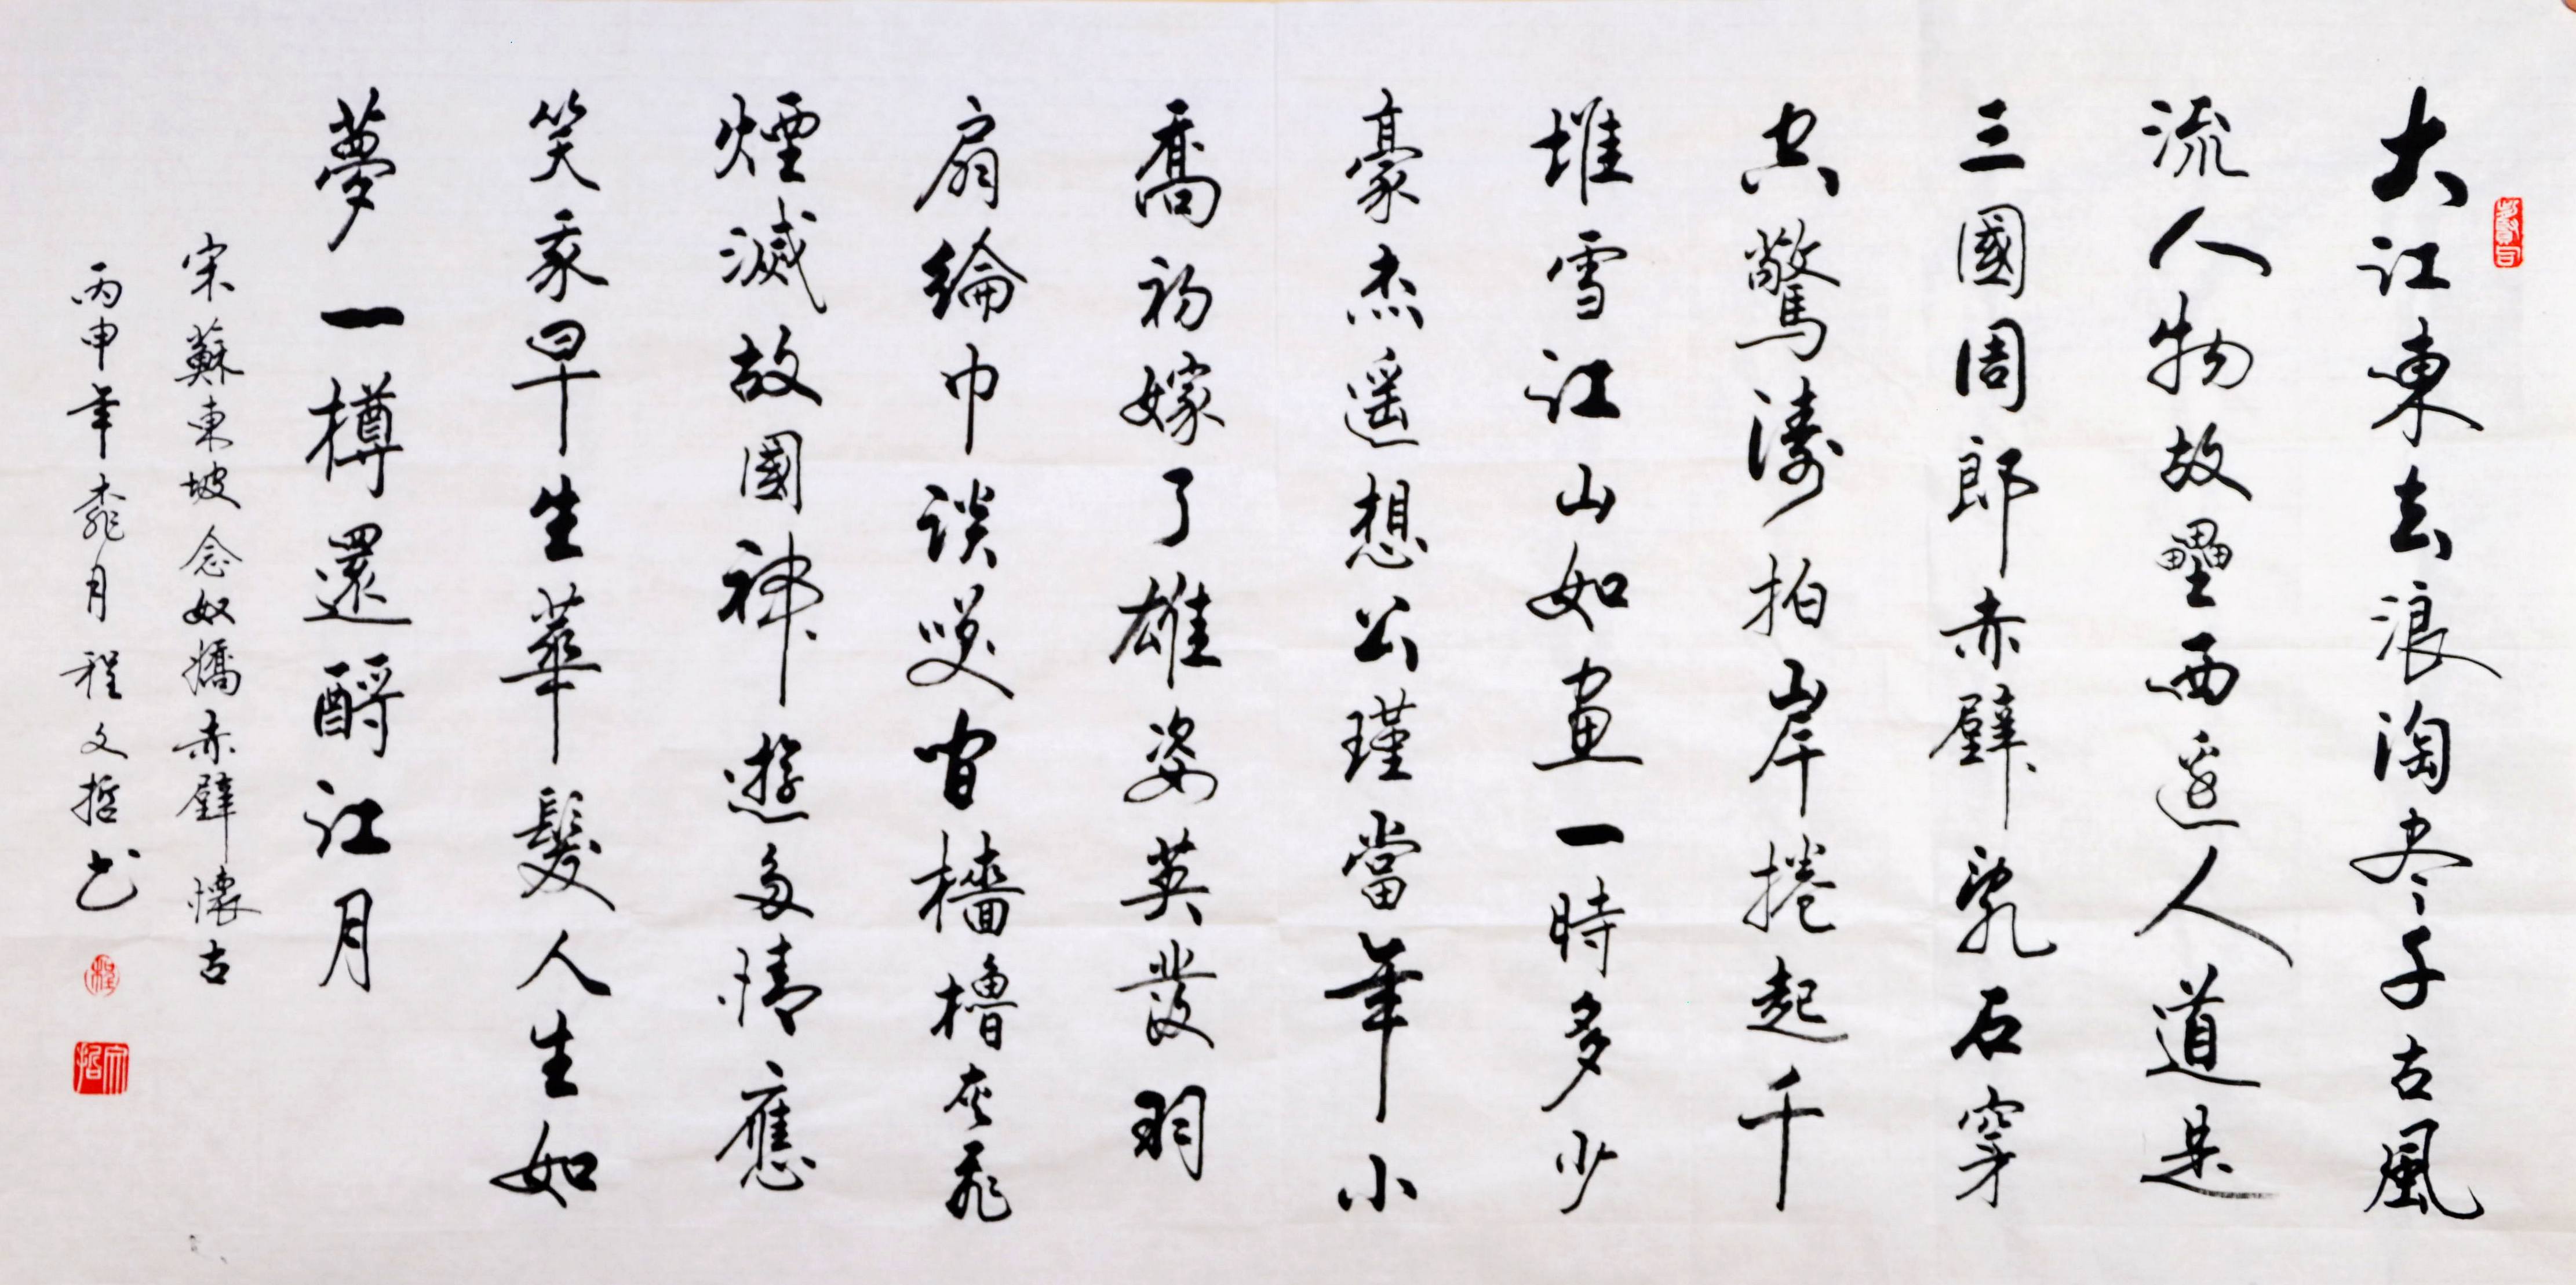 大江東去浪淘尽千古風
流人物故壘西邊人道是
三國周郎赤壁亂石穿
空驚濤拍岸捲起千
堆雪江山如畫一時多少
豪杰遥想公瑾當年小
喬初嫁了雄姿英發羽
扇綸巾談笑間檣櫓灰飛
煙滅故國神遊多情應
笑我早生華髮人生如
夢一樽還酹江月
宋蘇東坡念奴嬌赤壁懷古
丙申年桃月程文哲书
程
文哲